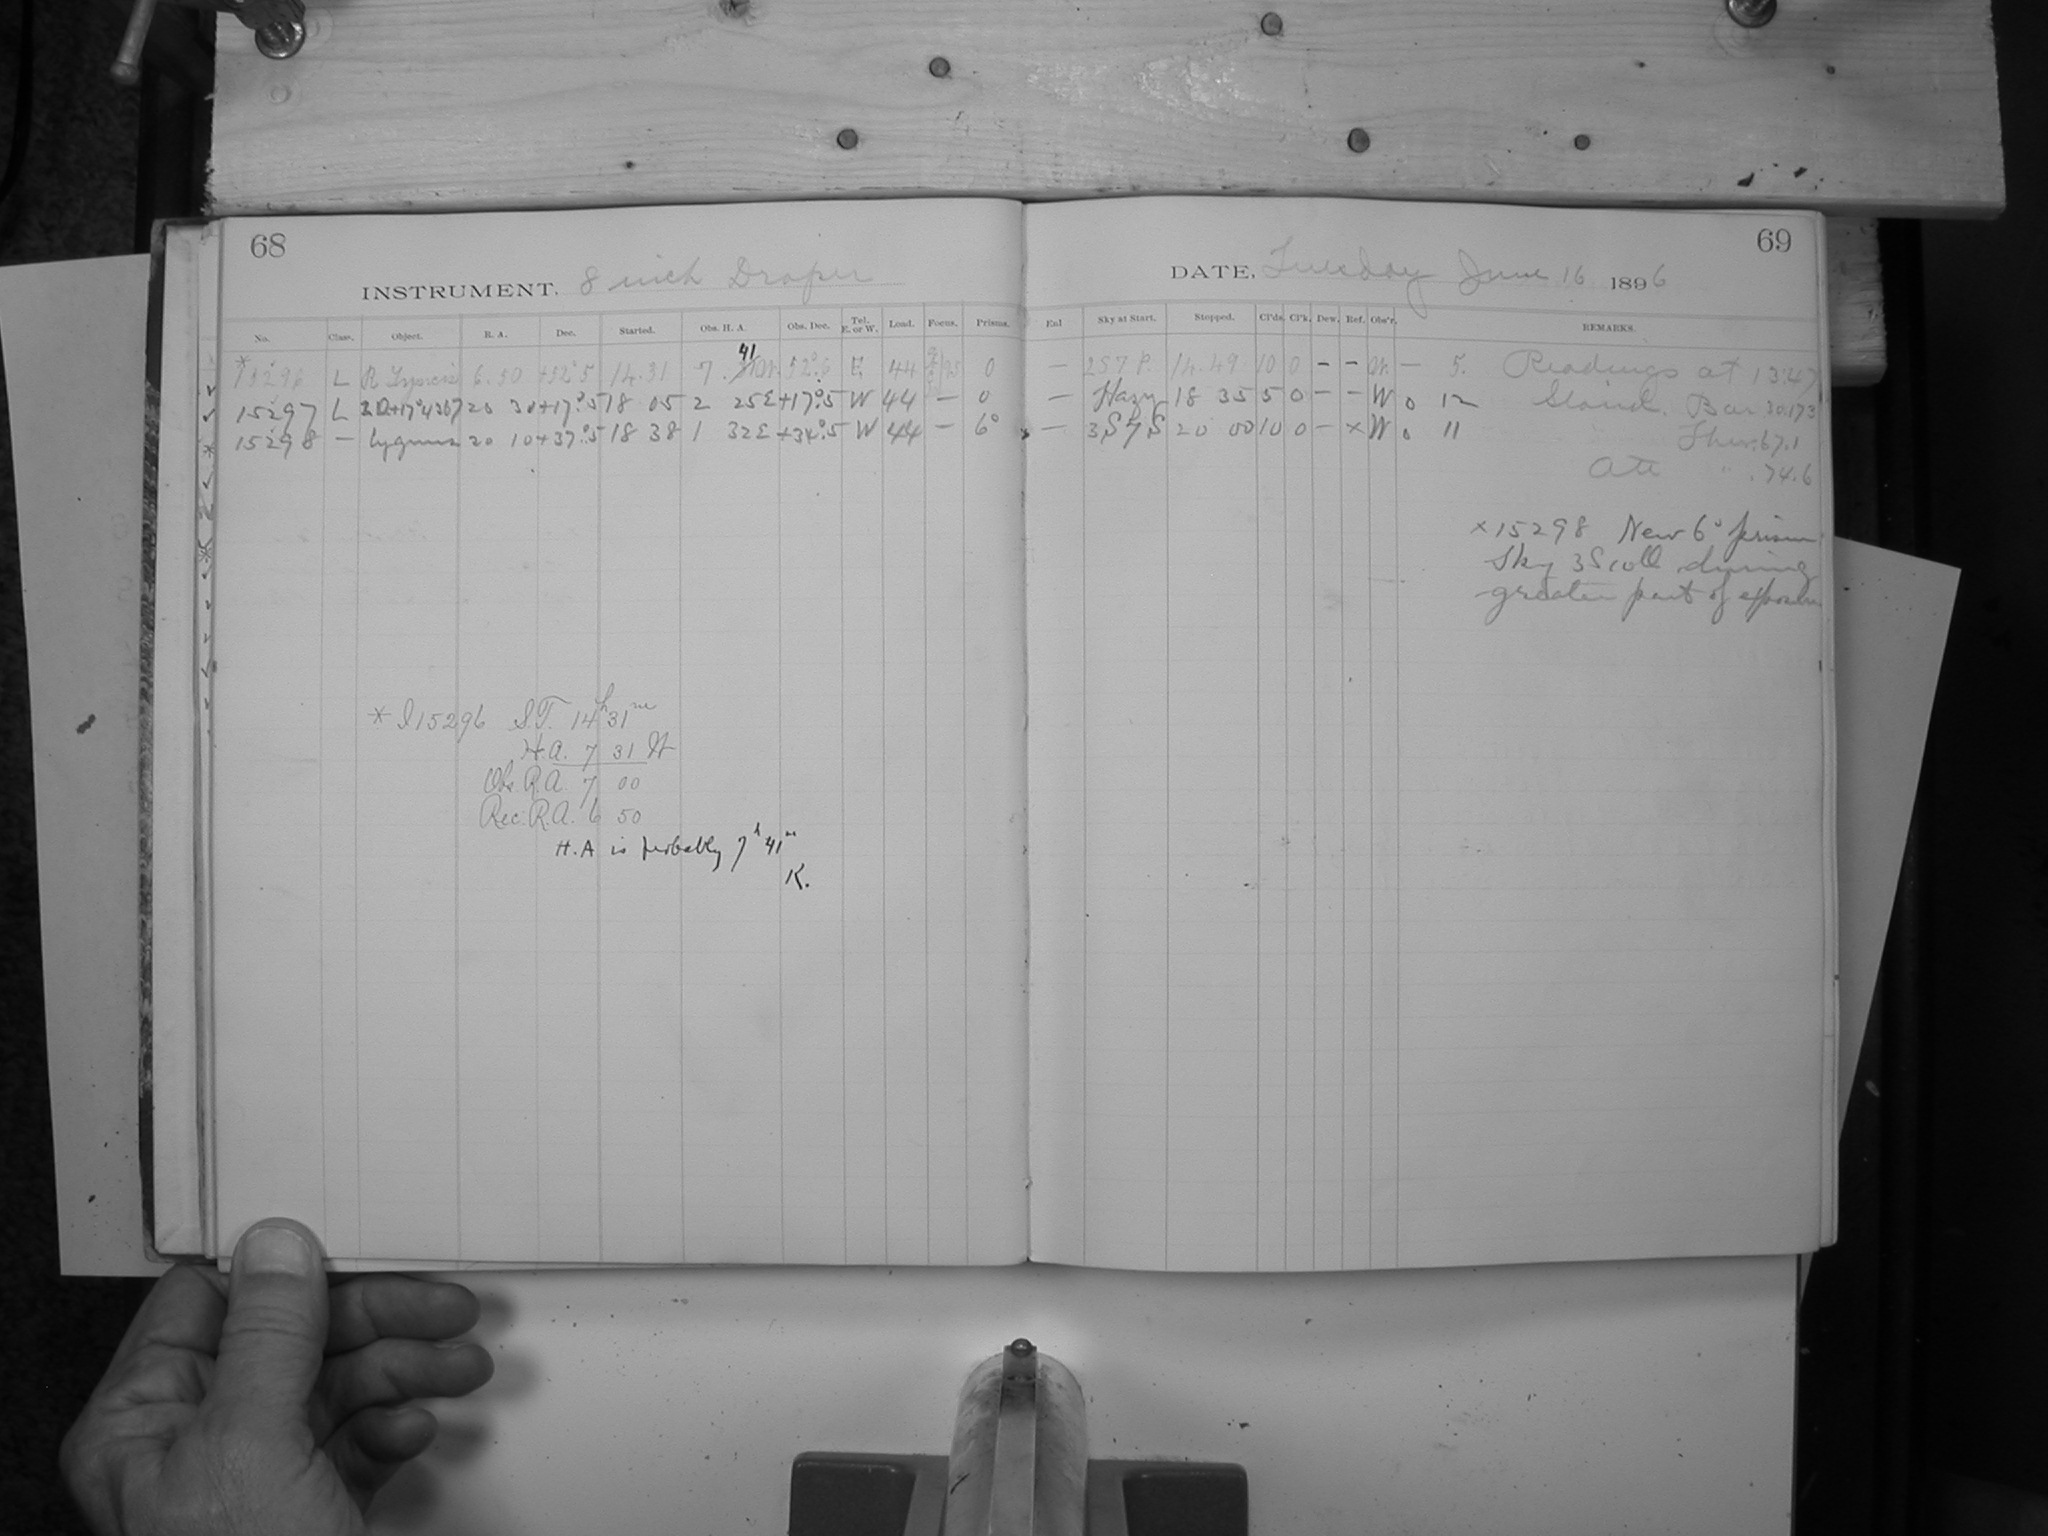 68
INSTRUMENT. 8 inch Draper
No. Class. Object. R. A. Dec. Started. Obs. H. A. Obs. Dec. Tel. E. or W. Load. Focus. Prisms.
41
*15296 L R Lyncis 6.50 +52°.5 14.31 7. 31W. 52°.6 E. 44 0
15297 L 20 30 +17°.5 18 05 2 25E +17°.5 W 44 — 0
15298 — Cygnus 20 10 +37°.5 18 38 1 32E +34°.5 W 44 — 6°
* I15296 S.T. 14h 31m
H.A. 7 31 W
Obs. R.A. 7 00
Rec. R.A. 6 50
H.A is probably 7h 41m
K.
69
DATE, Tuesday June 16 1896
Enl Sky at Start. Stopped. Cl'ds. Cl'k. Dew. Ref. Obs'r. REMARKS.
— 14.49. 10 0 – – W. — 5. Readings at 13:47
— Hazy 18 35 5 0 – – W 0 12 Stand. Bar 30.173
— 20 00 10 0 – × W 0 11 Ther. 67.1
Att " . 74.6
×15298 New 6° prism
Sky during
greater part of exposure